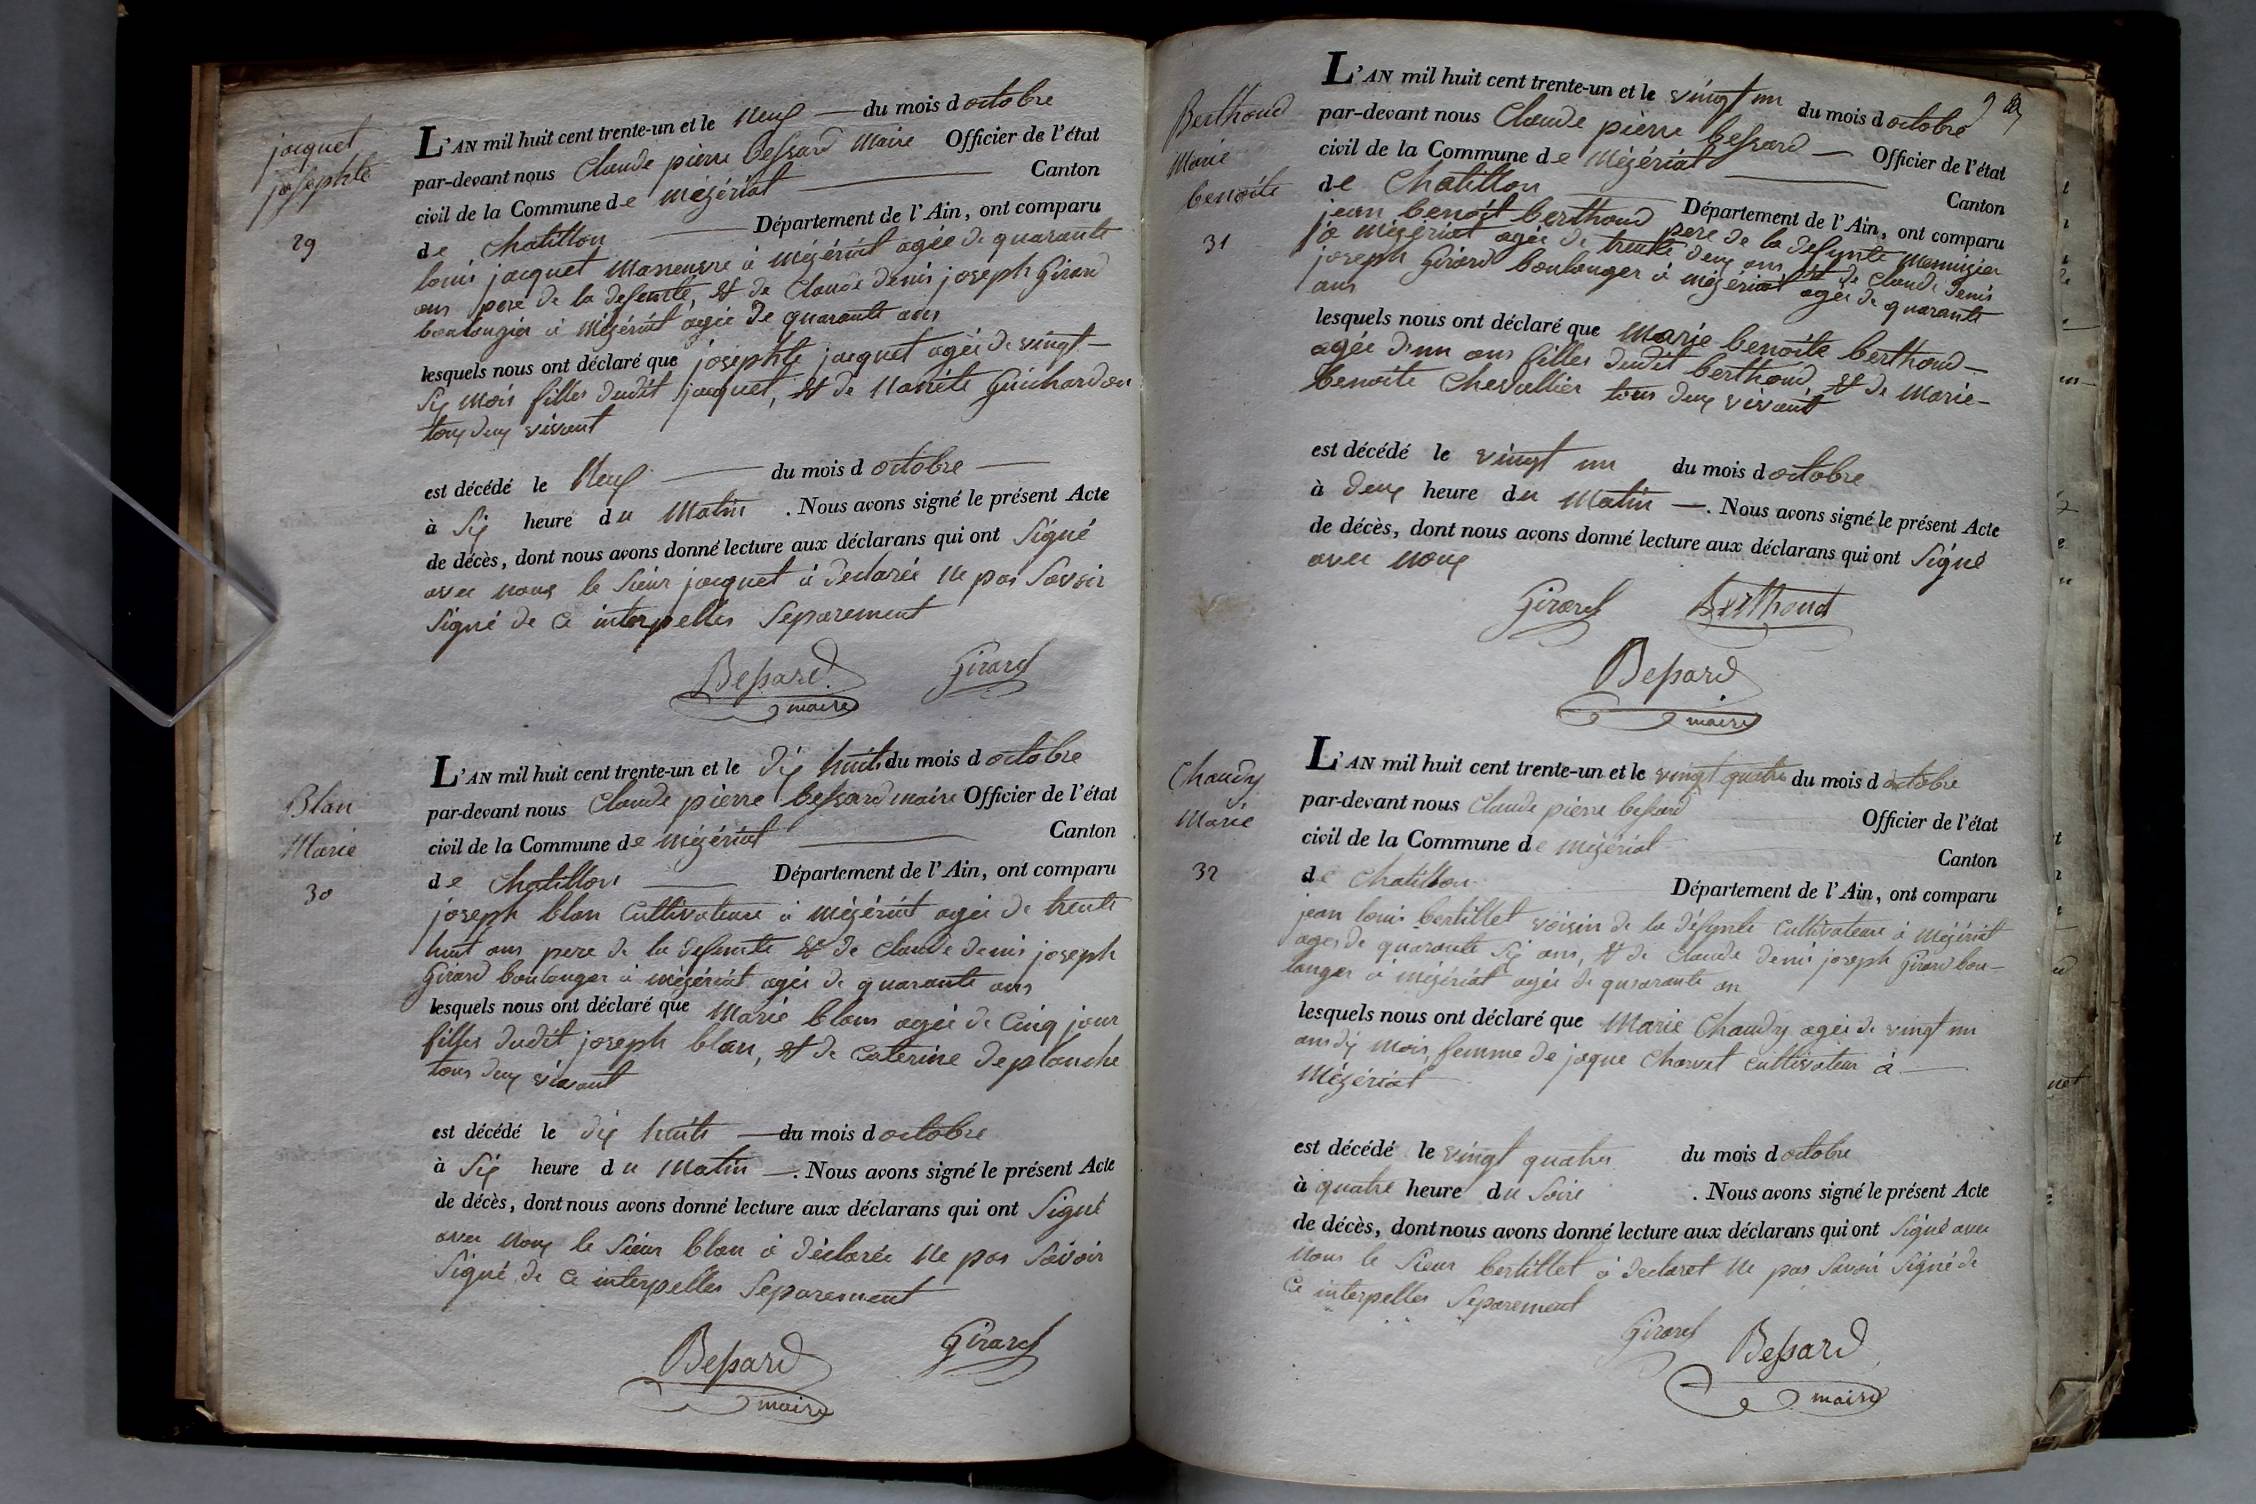 jacquet
josephte
29
L'AN mil huit cent trente-un et le neuf du mois d octobre
par-devant nous Claude pierre bessard Maire Officier de l'état
civil de la Commune de mézériat Canton
de Chatillon Département de l'Ain, ont comparu
louis jacquet Maneuvre à mézériat agée de quarante
ans pere de la defunte, & de Claude denis joseph Girard
boulangier à Mézériat agée de quarante ans
lesquels nous ont déclaré que josephte jacquet agée de vingt
six mois filles dudit jacquet, & de Guichardon
tous deux vivant
est décédé le Neuf du mois d octobre
à Six heure du Matin . Nous avons signé le présent Acte
de décès, dont nous avons donné lecture aux déclarans qui ont Signé
avec nous le Sieur jacquet à declarée ne pas Savoir
Signé de ce interpelles Separement
Bessard Girard
maire
Blan
Marie
30
L'AN mil huit cent trente-un et le dix huits du mois d octobre
par-devant nous Claude pierre bessard maire Officier de l'état
civil de la Commune de mézériat Canton
de Chatillon Département de l'Ain, ont comparu
joseph blan Cultivateur à mézériat agée de trente
huit ans pere de la defunte & de Claude denis joseph
Girard boulanger à mézériat agée de quarante ans
lesquels nous ont déclaré que Marie blan agée de Cinq jour
filles dudit joseph blan, & de Caterine deplanche
tous deux vivant
est décédé le dix huits du mois d octobre
à Six heure du Matin . Nous avons signé le présent Acte
de décès, dont nous avons donné lecture aux déclarans qui ont Signé
avec nous le Sieur blan à déclarée ne pas Savoir
Signé de ce interpelles Separement
Bessard Girard
maire
Berthoud
Marie
benoite
31
L'AN mil huit cent trente-un et le vingt un du mois d octobre
par-devant nous Claude pierre bessard Officier de l'état
civil de la Commune de Mézériat Canton
de Chatillon Département de l'Ain, ont comparu
jean benoit berthoud pere de la defunte Menuisier
à mézériat agée de trente deux ans & de Claude denis
joseph Girard boulanger à mézériat agée de quarante
ans
lesquels nous ont déclaré que Marie benoite berthoud
agée d'un ans filles dudit berthoud, & de Marie-
benoite Chevallier tous deux vivant
est décédé le vingt un du mois d octobre
à deux heure du Matin . Nous avons signé le présent Acte
de décès, dont nous avons donné lecture aux déclarans qui ont Signé
avec nous
Girard Berthoud
Bessard
maire
Chaudy
Marie
32
L'AN mil huit cent trente-un et le vingt quatre du mois d octobre
par-devant nous Claude pierre bessard Officier de l'état
civil de la Commune de mézériat Canton
de Chatillon Département de l'Ain, ont comparu
jean louis bertillet voisin de la défunte Cultivateur à Mézériat
ages de quarante Six ans, & de Claude denis joseph Girard bou-
langer à mézériat agée de quarante an
lesquels nous ont déclaré que Marie Chaudy agée de vingt un
ans dix mois femme de jaque Charvet Cultivateur à
Mézériat
est décédé le vingt quatre du mois d octobre
à quatre heure du Soire . Nous avons signé le présent Acte
de décès, dont nous avons donné lecture aux déclarans qui ont Signé avec
nous le Sieur bertillet à declaret ne pas Savoir Signé de
Ce interpelles Separement
Girard Bessard
maire